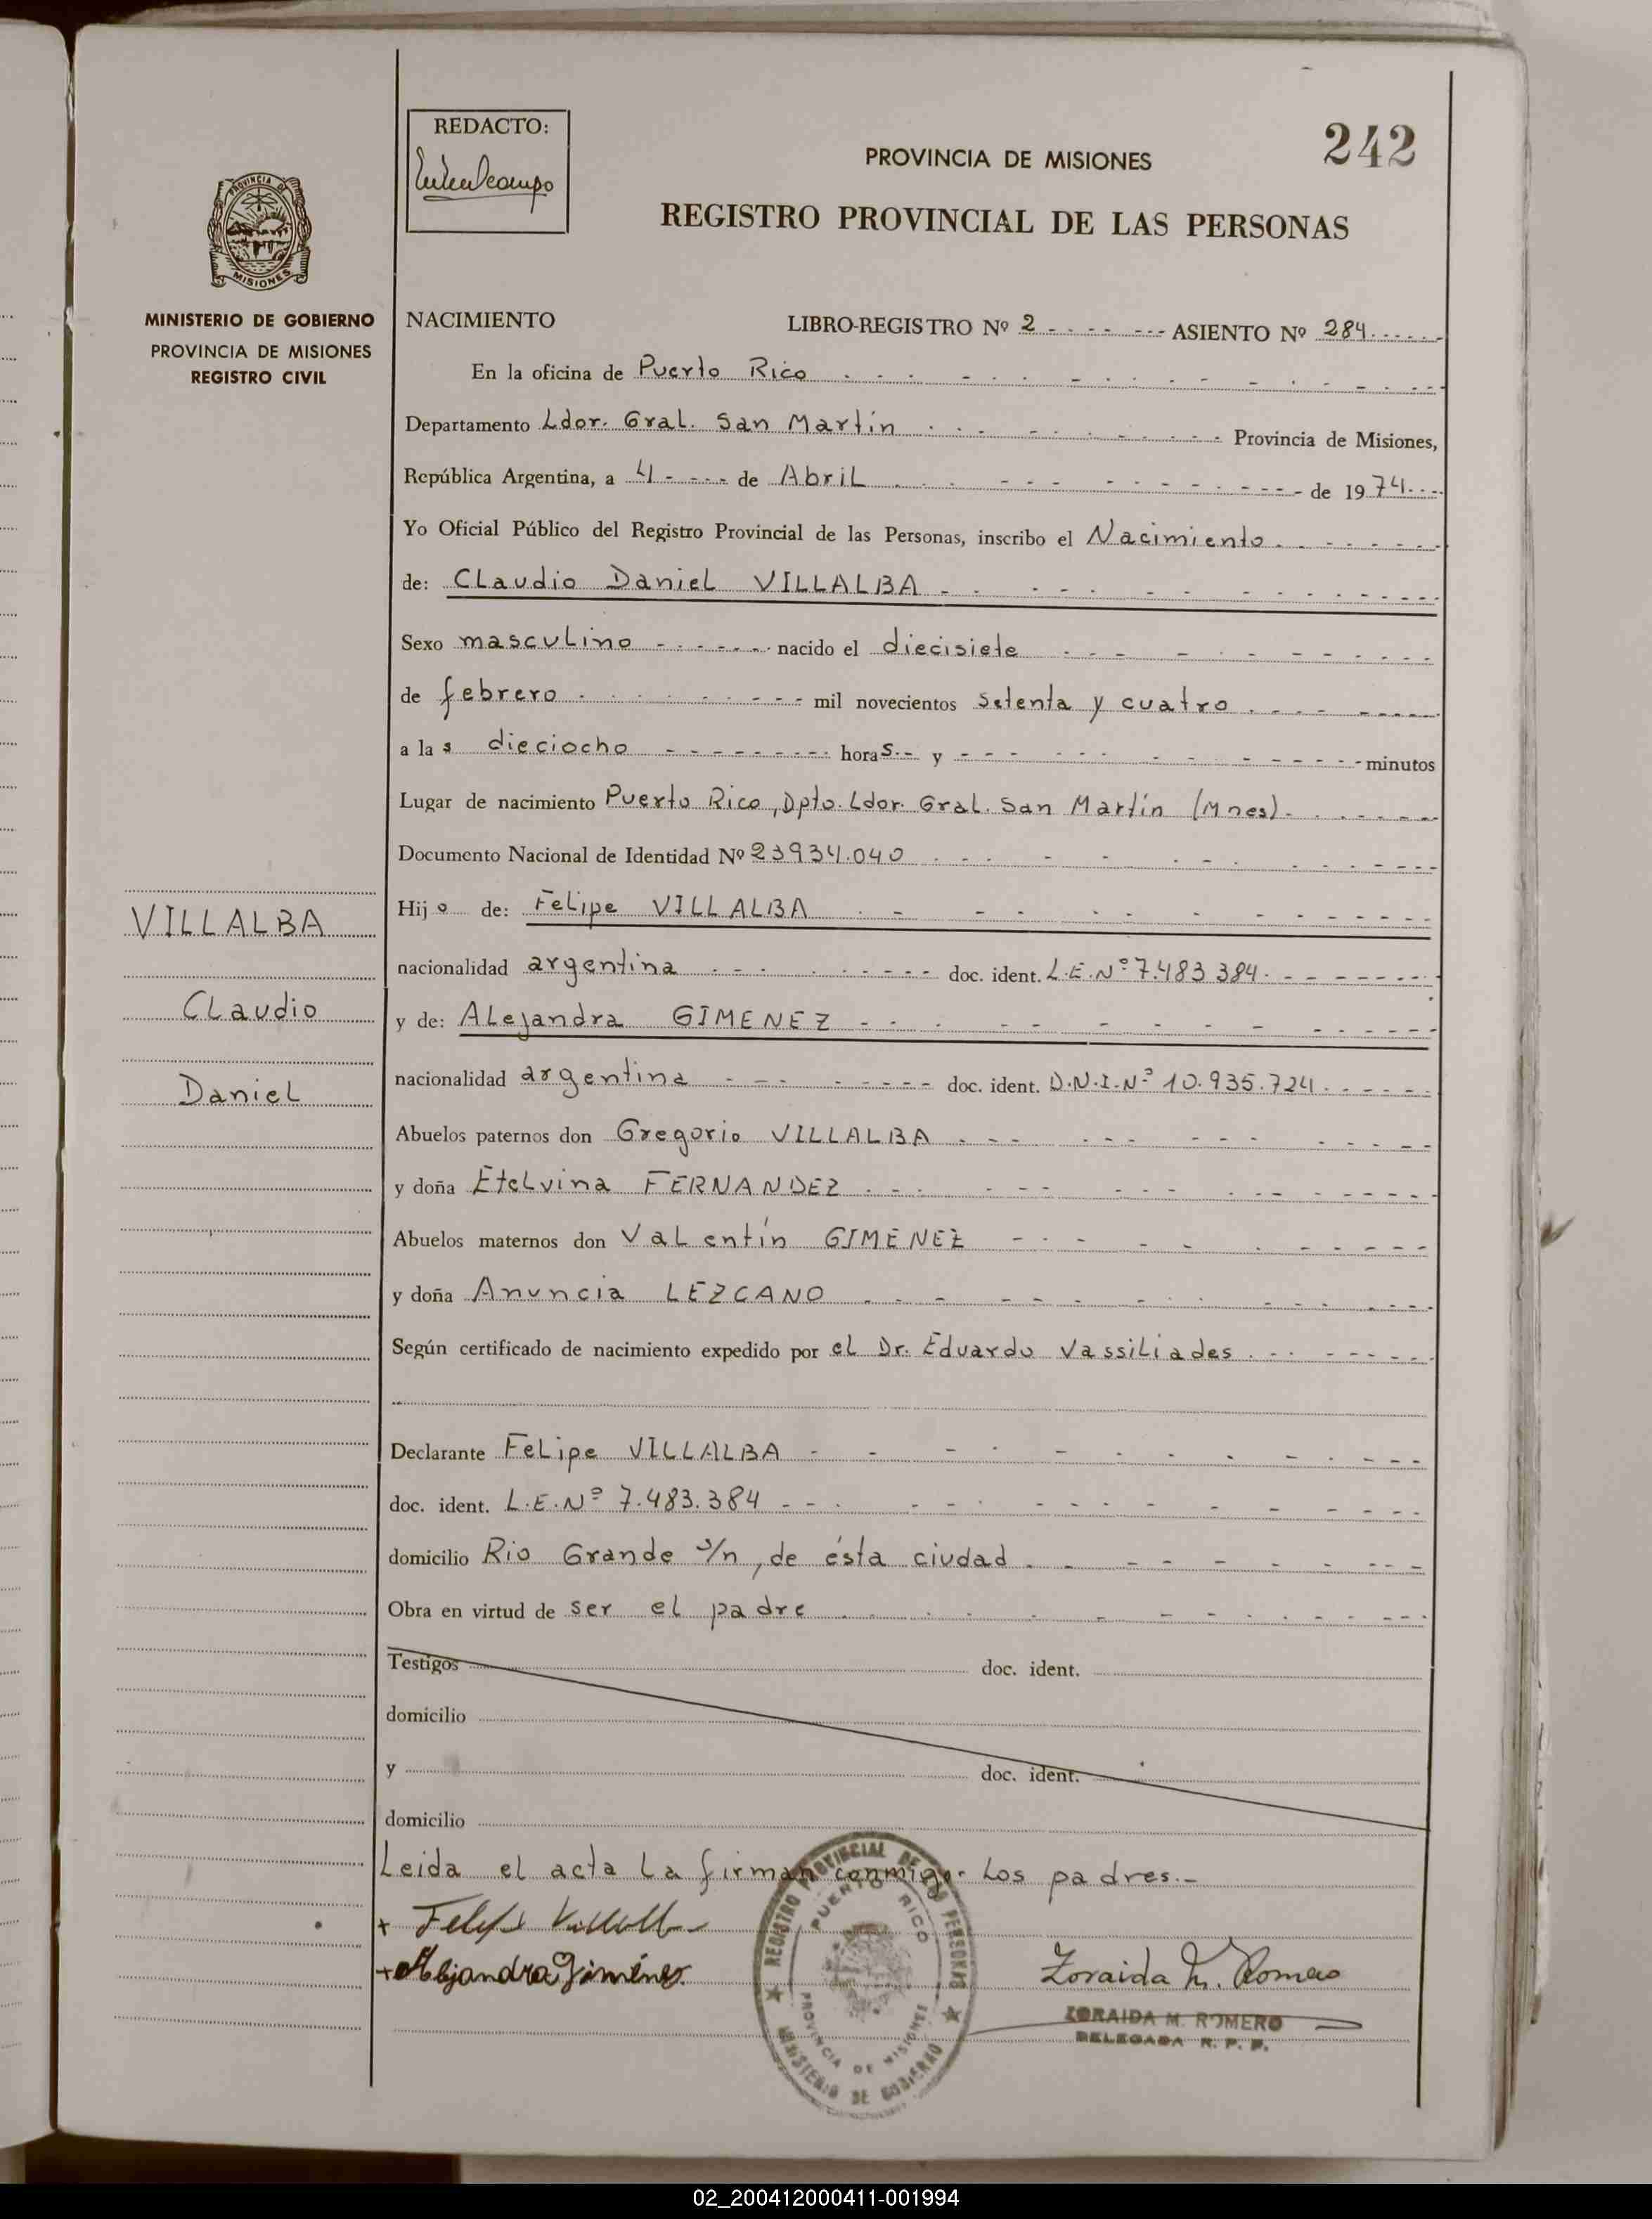 242
REDACTO:
PROVINCIA DE MISIONES
REGISTRO PROVINCIAL DE LAS PERSONAS
PROVINCIA DE
MISIONES
MINISTERIO DE GOBIERNO
PROVINCIA DE MISIONES
REGISTRO CIVIL
NACIMIENTO LIBRO-REGISTRO Nº 2 ASIENTO Nº 284
En la oficina de Puerto Rico
Departamento Ldor. Gral. San Martín Provincia de Misiones,
República Argentina, a 4 de Abril de 1974
Yo Oficial Público del Registro Provincial de las Personas, inscribo el Nacimiento
de: Claudio Daniel VILLALBA
Sexo masculino nacido el diecisiete
de febrero mil novecientos setenta y cuatro
a las dieciocho horas y minutos
Lugar de nacimiento Puerto Rico, Dpto. Ldor. Gral. San Martín (Mnes)
Documento Nacional de Identidad Nº 23934.040
Hijo de: Felipe VILLALBA
nacionalidad argentina doc. ident. L.E.Nº 7.483 384
y de: Alejandra GIMENEZ
nacionalidad argentina doc. ident. D.N.I.Nº 10.935.724
Abuelos paternos don Gregorio VILLALBA
y doña Etelvina FERNANDEZ
Abuelos maternos don Valentín GIMENEZ
y doña Anuncia LEZCANO
Según certificado de nacimiento expedido por el Dr. Eduardo Vassiliades
Declarante Felipe VILLALBA
doc. ident. L.E.Nº 7.483.384
domicilio Rio Grande s/n, de ésta ciudad
Obra en virtud de ser el padre
Testigos doc. ident.
domicilio
y doc. ident.
domicilio
Leida el acta la firman conmigo los padres.-
VILLALBA
Claudio
Daniel
Alejandra Giménez
Zoraida M. Romero
ZORAIDA M. ROMERO
DELEGADA R. P. P.
REGISTRO PROVINCIAL DE LAS PERSONAS
PUERTO RICO
PROVINCIA DE MISIONES
MINISTERIO DE GOBIERNO
02_200412000411-001994